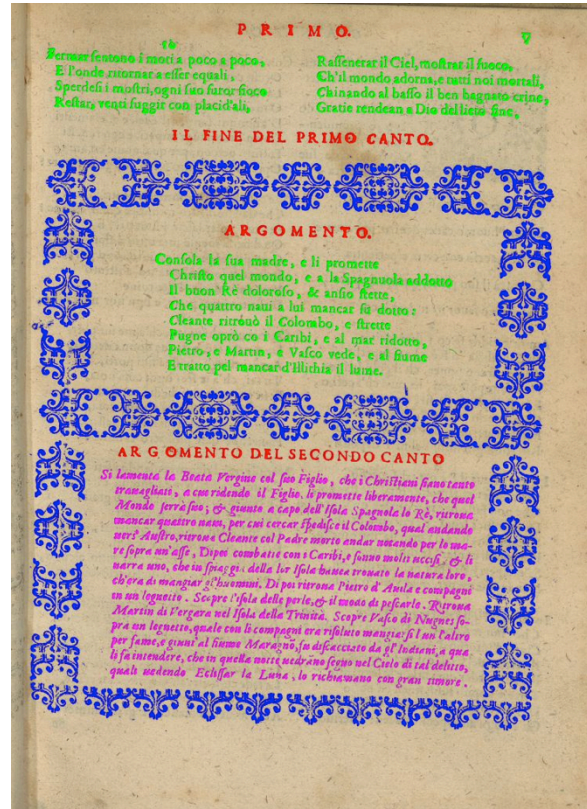 PRIMO.
56
Fermar sentono i moti a poco a poco,
E l'onde ritornar a esser equali,
Sperdesi i mostri, ogni suo furor fioco
Restar, venti fuggir con placid'ali,
Rasserenar il Ciel, mostrar il fuoco,
Ch'il mondo adorna, e tutti noi mortali,
Chinando al basso il ben bagnato crine,
Gratie rendean a Dio del lieto fine,
IL FINE DEL PRIMO CANTO.
ARGOMENTO.
Consola la sua madre, e li promette
Christo quel mondo, e a la Spagnuola addotto
Il buon Rè doloroso, & ansio stette,
Che quattro naui a lui mancar fe dotto:
Cleante ritrouò il Colombo, e strette
Pugne oprò co i Caribi, e al mar ridotto,
Pietro, e Martin, e Vasco vede, e al fiume
E tratto pel mancar d'Illithia il lume.
ARGOMENTO DEL SECONDO CANTO
Si lamenta la Beata Vergine col suo Figlio, che i Christiani siano tanto
trauagliati, a cui ridendo il Figlio, li promette liberamente, che quel
Mondo serrà suo; & giunto a capo dell'Isola Spagnola lo Rè, ritroua
mancar quattro naui, per cui cercar spedisce il Colombo, qual andando
uers' Austro, ritroua Cleante col Padre morto andar notando per lo ma-
re sopra un'asse, Dipoi combatte con i Caribi, e sonno molti uccisi, & li
narra uno, che in spiaggi. della lor Isola hauea trouato la natura loro,
ch'era di mangiar gl'huomini. Di poi ritroua Pietro d'Auela e compagni
in un legnetto. Scopre l'isola delle perle, & il modo di pescarle. Ritroua
Martin di Vergara nel Isola della Trinità. Scopre Vasco di Nugnes so-
pra un legnetto, quale con li compagni era risoluto mangiarsi l'un l'altro
per fame, e giunti al fiume Maragnò, fu discacciato da gl'Indiani, a qua
li fa intendere, che in quella notte uedrano segno nel Cielo di tal delitto,
quali uedendo Eclissar la Luna, lo richiamano con gran timore.